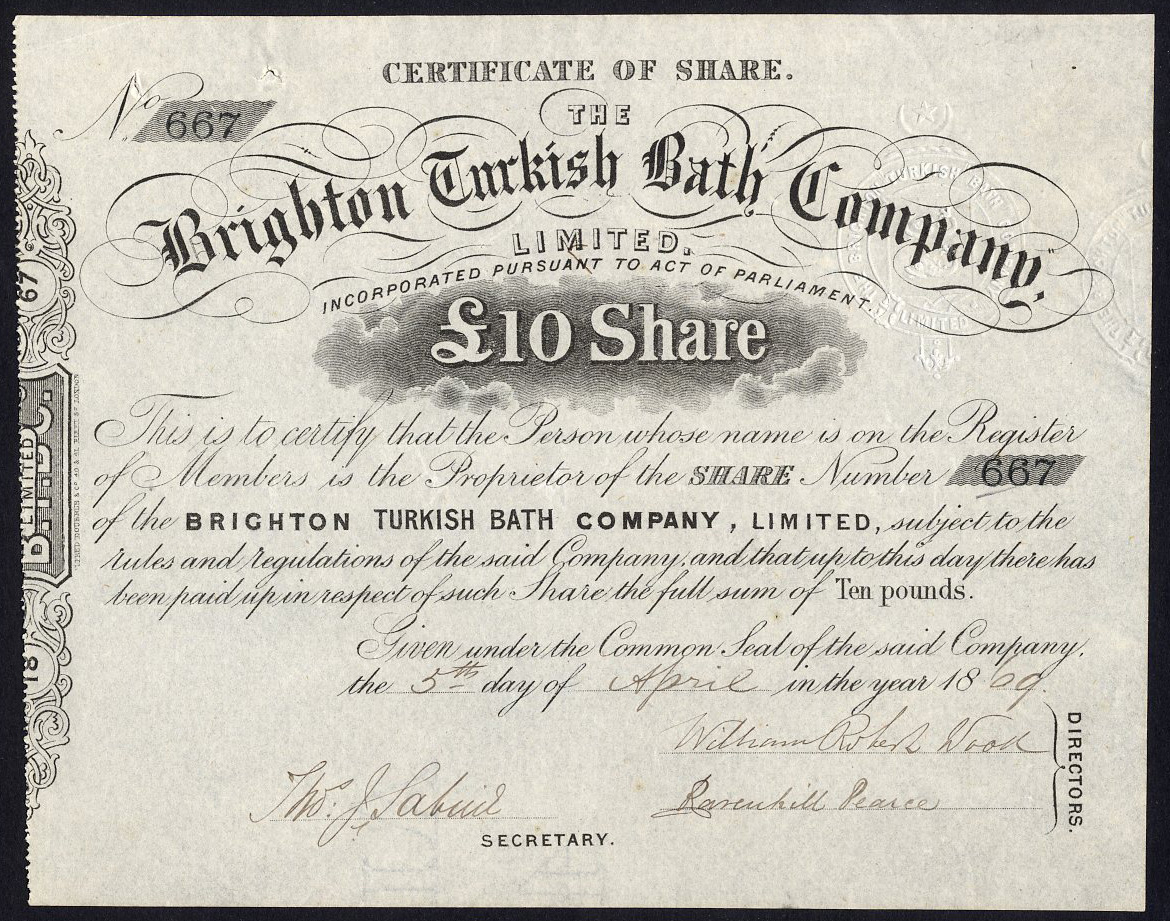 CERTIFICATE OF SHARE.
No 667
THE
Brighton Turkish Bath Company,
LIMITED.
INCORPORATED PURSUANT TO ACT OF PARLIAMENT.
£10 Share
This is to certify that the Person whose name is on the Register
of Members is the Proprietor of the SHARE Number 667
of the BRIGHTON TURKISH BATH COMPANY, LIMITED, subject to the
rules and regulations of the said Company, and that up to this day there has
been paid up in respect of such Share the full sum of Ten pounds.
Given under the Common Seal of the said Company,
the 5th day of April in the year 1869.
William Robert Wood
Ravenhill Pearce
DIRECTORS.
Thos. J.
SECRETARY.
67
LIMITED
18
TURKISH BATH
LIMITED